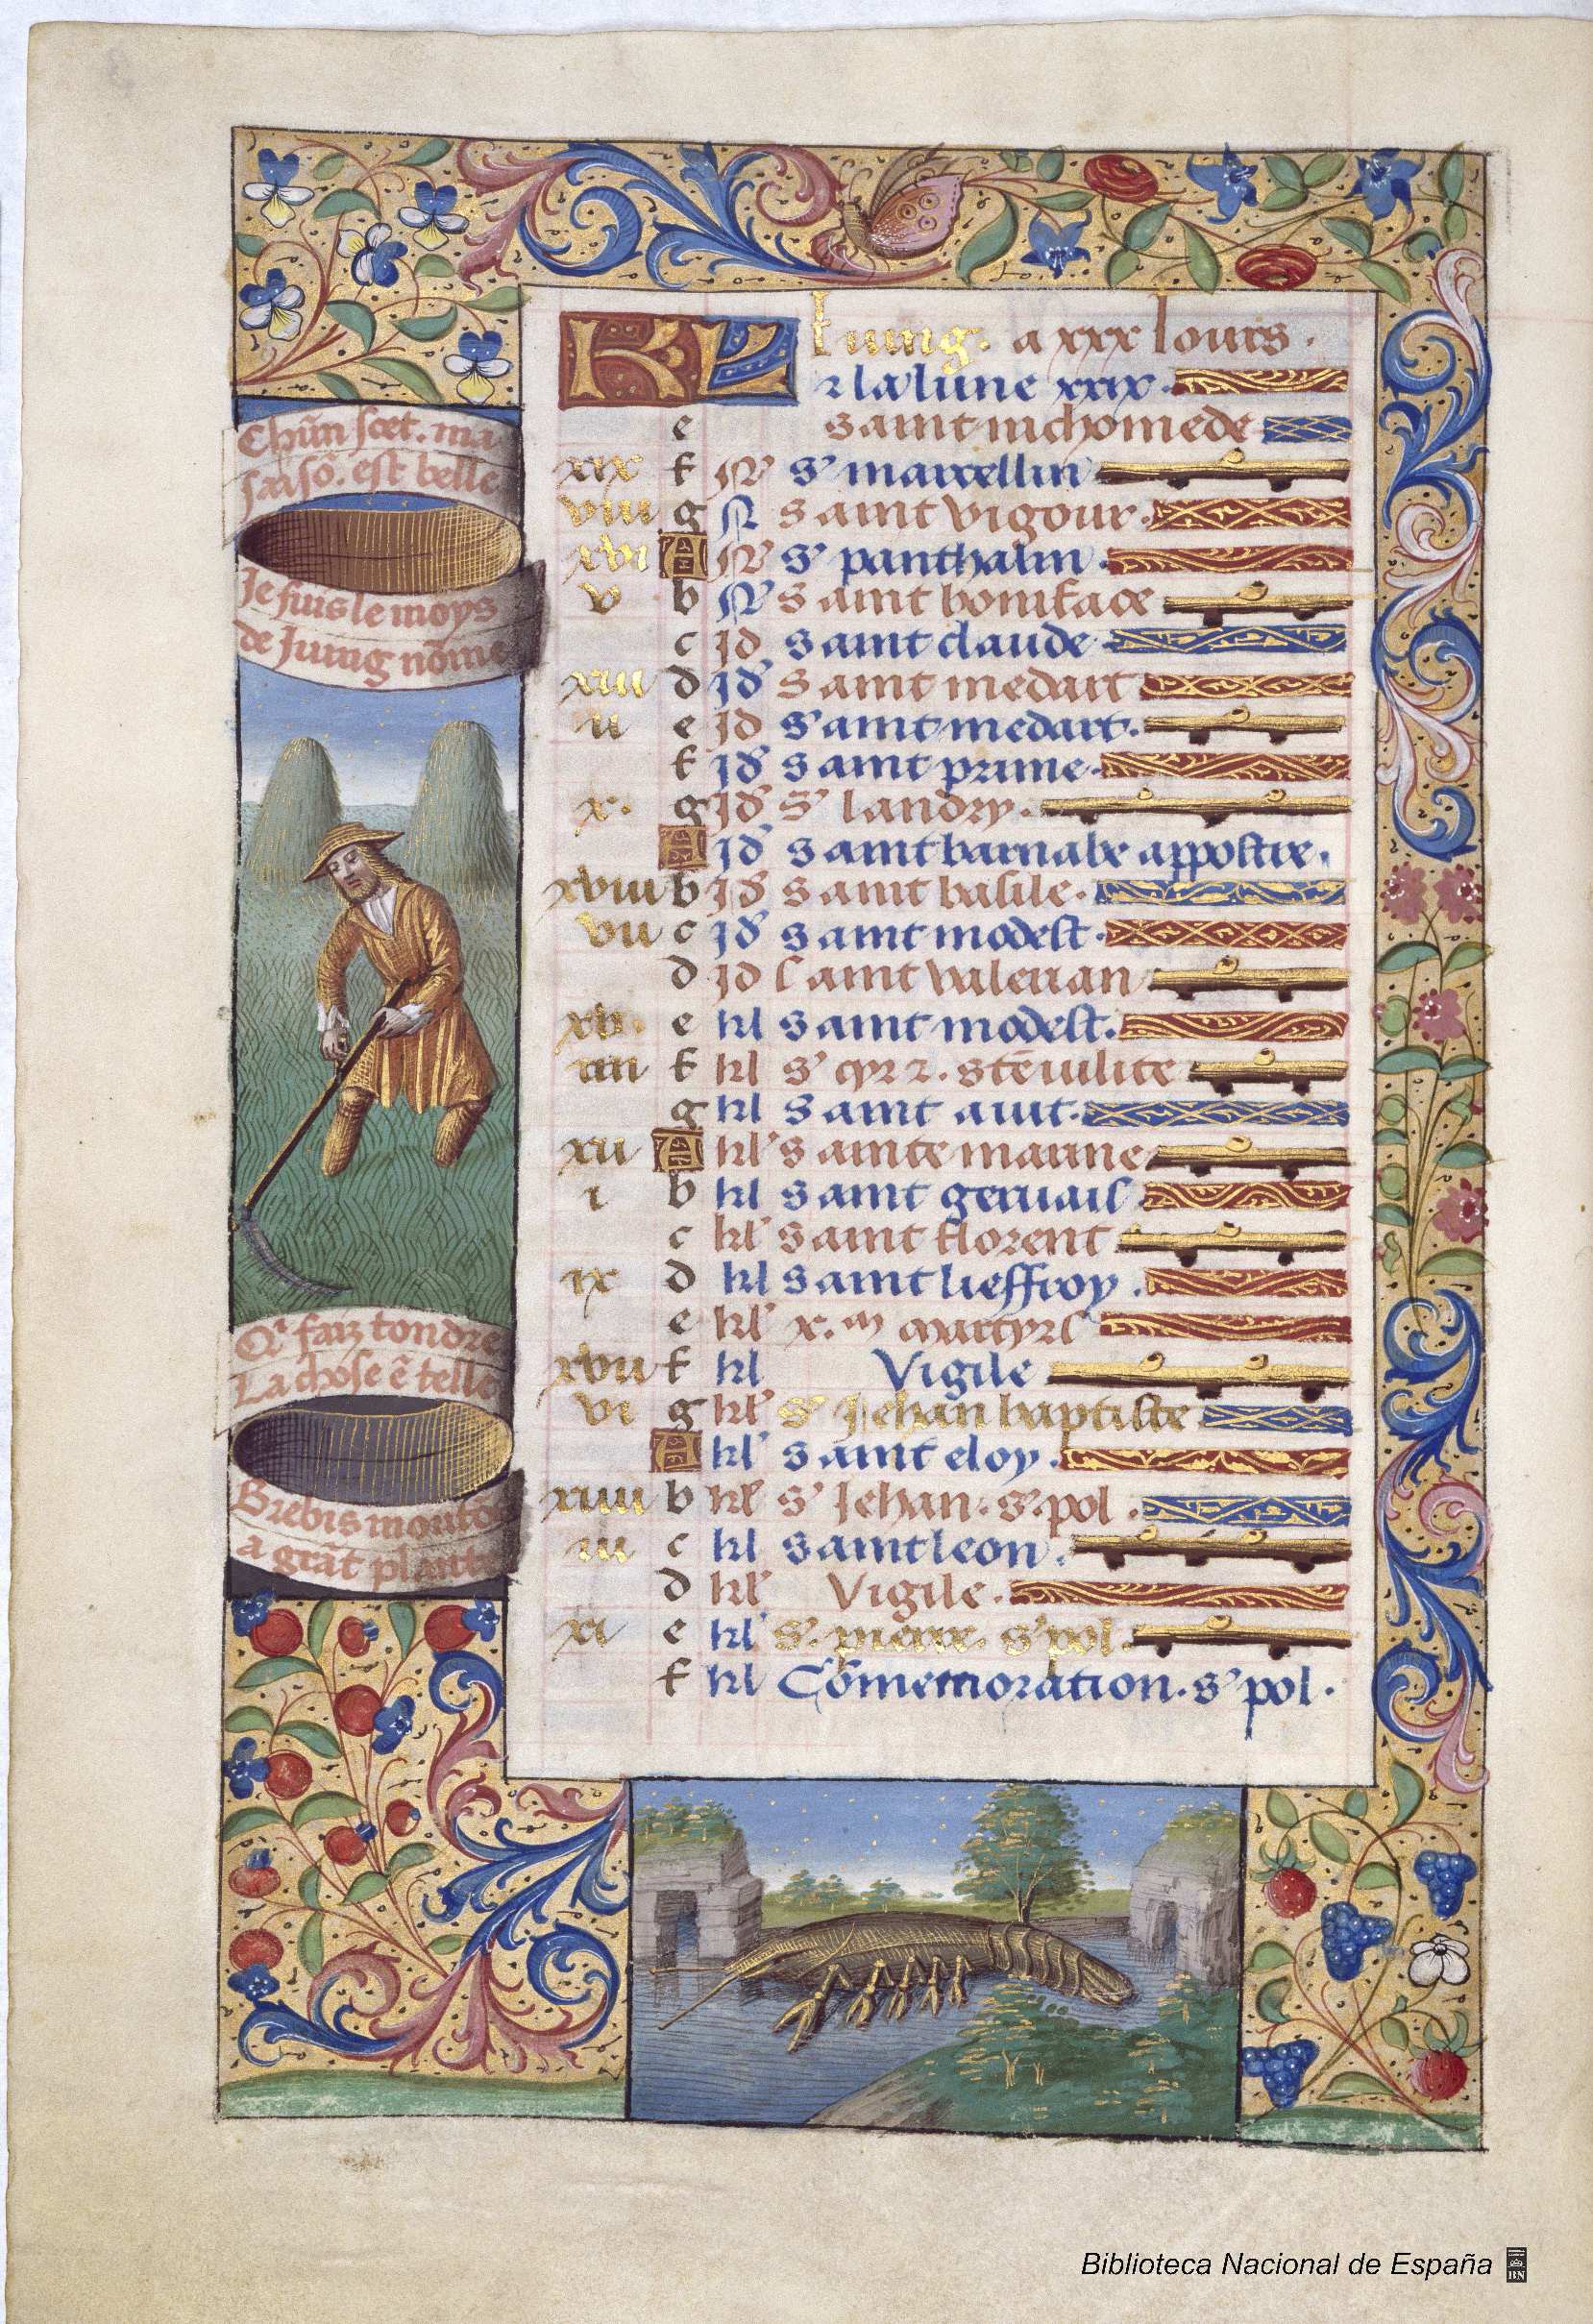 KL Iuing. a xxx Iours.
⁊ la lune xxix.
e saint nichomede
xix f N s' marcellin
viii g N saint vigour.
xvi A N s' panthalin.
v b N saint boniface
c Id saint claude.
xiii d Id saint medart
ii e Id saint medart.
f Id saint prime.
x. g Id s' landry.
A Id saint barnabe appostre.
xviii b Id saint basile.
vii c Id saint modest.
d Id saint valerian
xv. e kl saint modest.
iiii f kl s' cyr ⁊. stē iulite
g kl saint auit.
xii A kl sainte marine
i b kl saint geruais
c kl saint florent
ix d kl saint lieffroy.
e kl x.m martyrs
xvii f kl Vigile
vi g kl s' Jehan baptiste
A kl saint eloy.
xiiii b kl s' Jehan. s' pol.
iii c kl saint leon.
d kl Vigile.
xi e kl s'. pierre. s' pol.
f kl Cōmemoration. s' pol.
Chūn scet. ma
saisō. est belle
Je suis le moys
de Juing nōme
Qi faiz tondre
La chose ē telle
Brebis moutō
a grāt plante
Biblioteca Nacional de España
BN